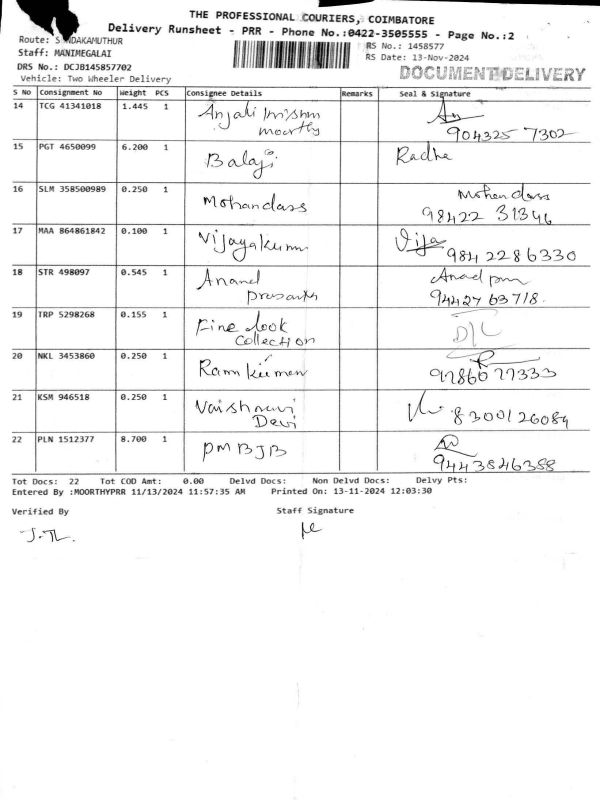 THE PROFESSIONAL COURIERS, COIMBATORE
Delivery Runsheet - PRR - Phone No.:0422-3505555 - Page No.:2
Route: S NDAKAMUTHUR
RS No.: 1458577
Staff: MANIMEGALAI
RS Date: 13-Nov-2024
DRS No.: DCJB145857702
DOCUMENT DELIVERY
Vehicle: Two Wheeler Delivery
S No Consignment No Weight PCS Consignee Details Remarks Seal & Signature
14 TCG 41341018 1.445 1 Anjali
moorthy
904325 7302
15 PGT 4650099 6.200 1 Balaji Radha
16 SLM 358500989 0.250 1 Mohandass Mohandass
98422 31346
17 MAA 864861842 0.100 1 Vijayakumar Vija
984 2286330
18 STR 498097 0.545 1 Anand
94427 63718.
19 TRP 5298268 0.155 1 Fine look
Collection
D/C
20 NKL 3453860 0.250 1 Ram Kumar
97860 77333
21 KSM 946518 0.250 1 Vaishnavi
Devi
8300126084
22 PLN 1512377 8.700 1 PMBJB
9443846388
Tot Docs: 22 Tot COD Amt: 0.00 Delvd Docs: Non Delvd Docs: Delvy Pts:
Entered By :MOORTHYPRR 11/13/2024 11:57:35 AM Printed On: 13-11-2024 12:03:30
Verified By Staff Signature